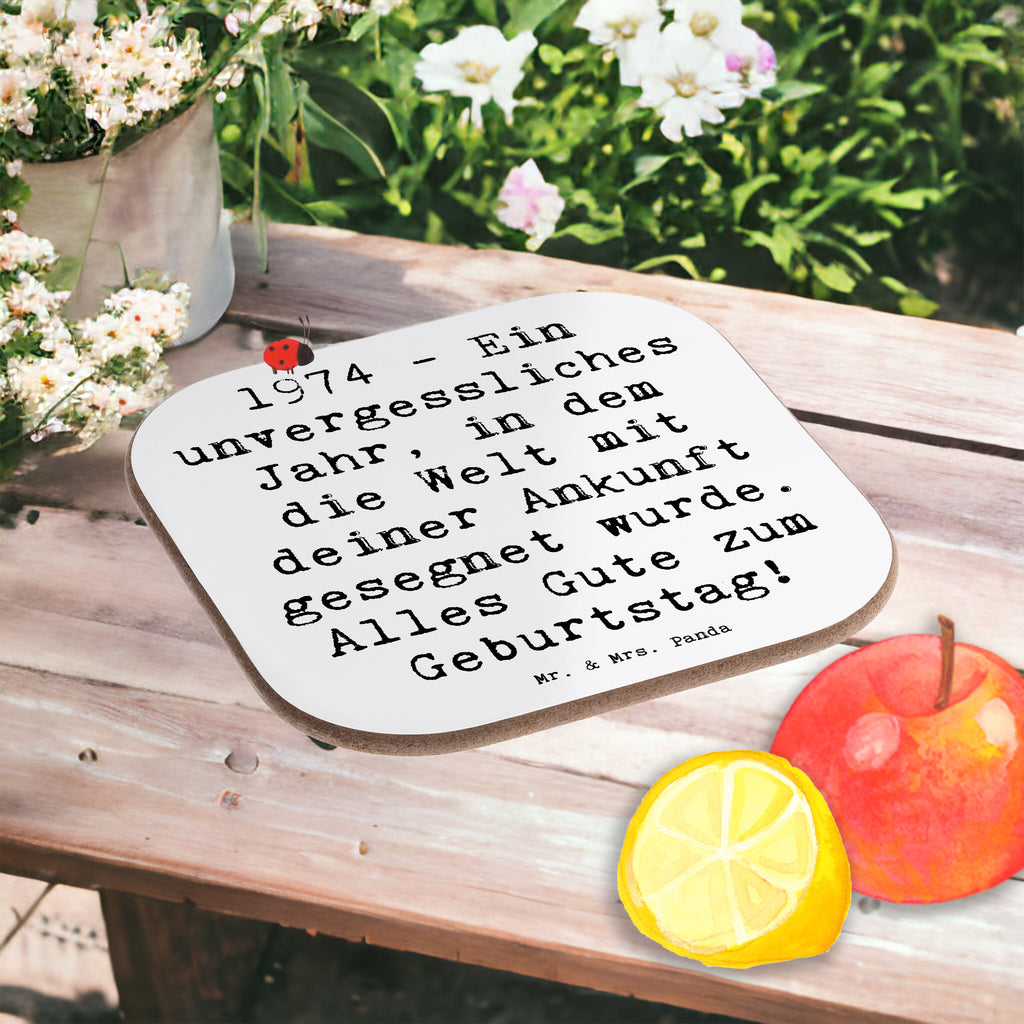 1974 - Ein
unvergessliches
Jahr, in dem
die Welt mit
deiner Ankunft
gesegnet wurde.
Alles Gute zum
Geburtstag!
Mr. & Mrs. Panda